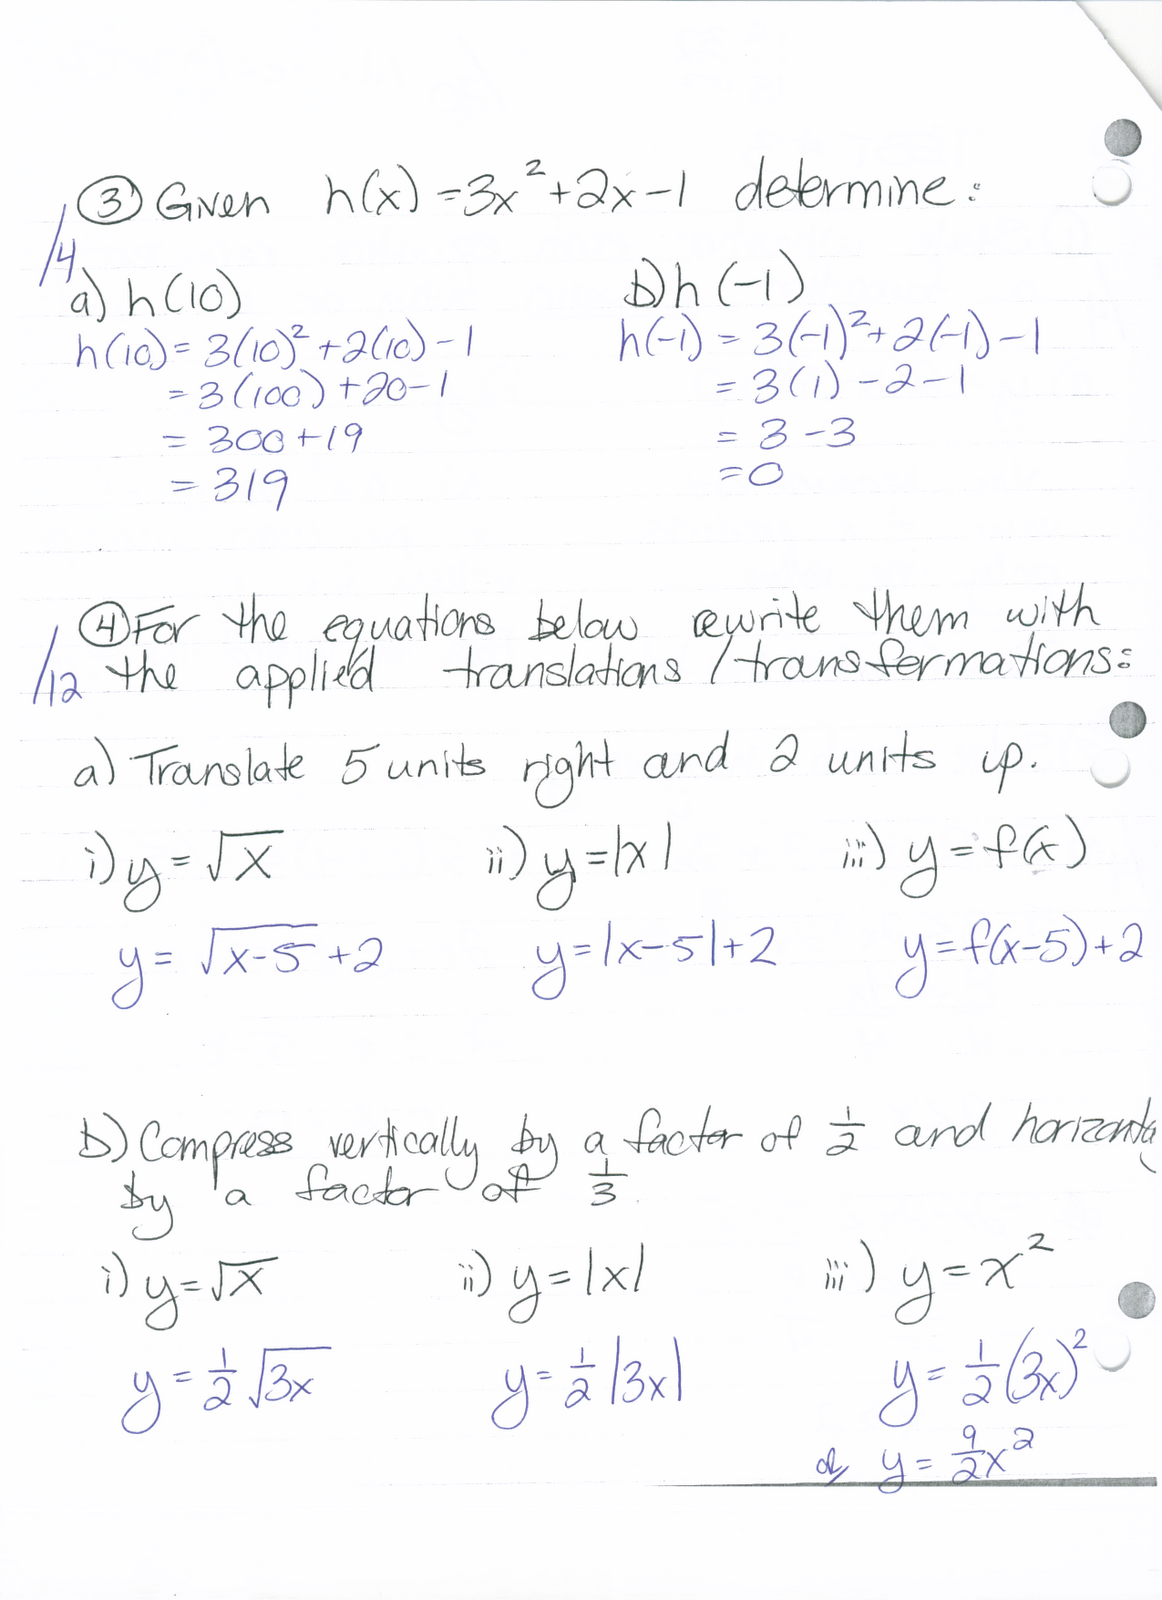 ③ Given h(x) = 3x² + 2x - 1 determine:
/4
a) h(10) b) h(-1)
h(10) = 3(10)² + 2(10) - 1 h(-1) = 3(-1)² + 2(-1) - 1
= 3(100) + 20 - 1 = 3(1) - 2 - 1
= 300 + 19 = 3 - 3
= 319 = 0
④ For the equations below rewrite them with
/12 the applied translations / transformations:
a) Translate 5 units right and 2 units up.
i) y = √x ii) y = |x| iii) y = f(x)
y = √(x-5) + 2 y = |x-5| + 2 y = f(x-5) + 2
b) Compress vertically by a factor of 1/2 and horizonta
by a factor of 1/3.
i) y = √x ii) y = |x| iii) y = x²
y = 1/2 √(3x) y = 1/2 |3x| y = 1/2 (3x)²
or y = 9/2 x²